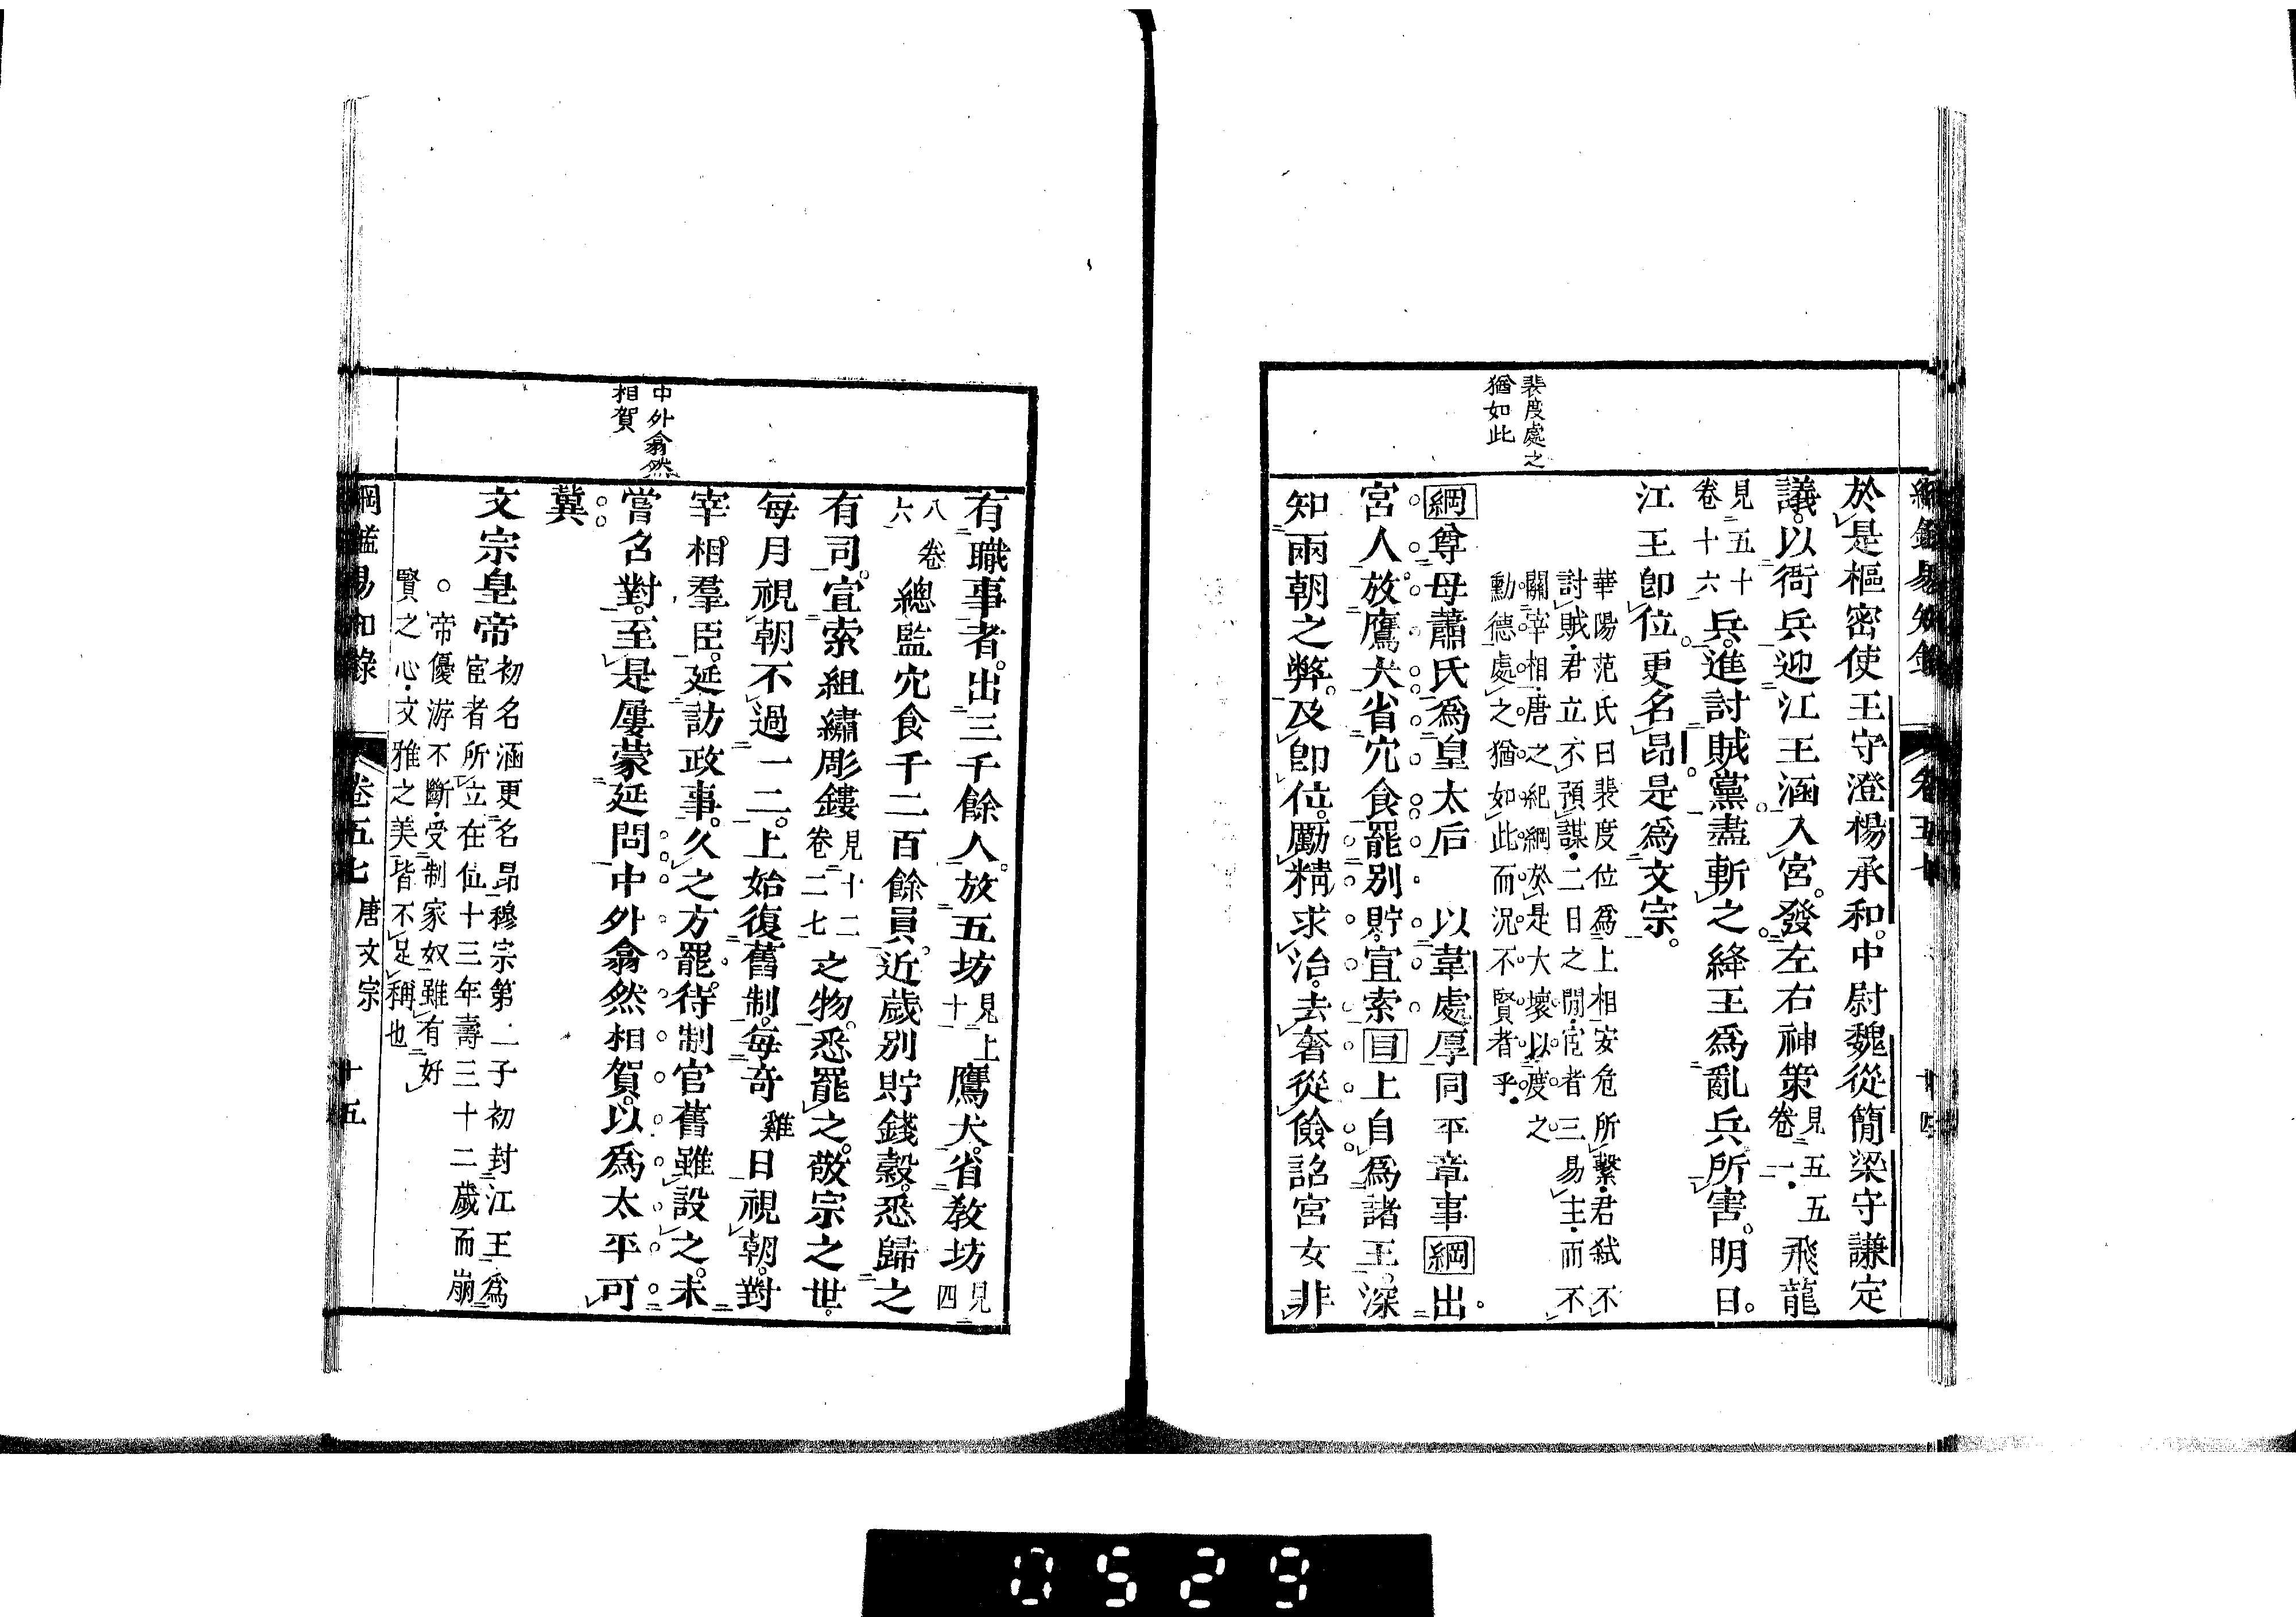 綱鑑易知錄
卷五七
十四
裴度處之
猶如此
於是樞密使王守澄楊承和中尉魏從簡梁守謙定
議以衙兵迎江王涵入宮發左右神策見五五卷一飛龍
見五十卷十六兵進討賊黨盡斬之絳王爲亂兵所害明日
江王卽位更名昂是爲文宗
華陽范氏曰裴度位爲上相安危所繫君弒不
討賊君立不預謀二日之間宦者三易主而不
關宰相唐之紀綱於是大壞以度之
勳德處之猶如此而況不賢者乎
綱尊母蕭氏爲皇太后　以韋處厚同平章事綱出
宮人放鷹犬省冗食罷別貯宣索目上自爲諸王深
知兩朝之弊及卽位勵精求治去奢從儉詔宮女非
中外翕然
相賀
有職事者出三千餘人放五坊見上十鷹犬省教坊見四
八卷六總監冗食千二百餘員近歲別貯錢穀悉歸之
有司宣索組繡彫鏤見十二卷二七之物悉罷之敬宗之世
每月視朝不過一二上始復舊制每奇雞日視朝對
宰相羣臣延訪政事久之方罷待制官舊雖設之未
嘗召對至是屢蒙延問中外翕然相賀以爲太平可
冀
文宗皇帝初名涵更名昂穆宗第二子初封江王爲
宦者所立在位十三年壽三十二歲而崩
○帝優游不斷受制家奴雖有好
賢之心文雅之美皆不足稱也
綱鑑易知錄
卷五七
唐文宗
十五
0529